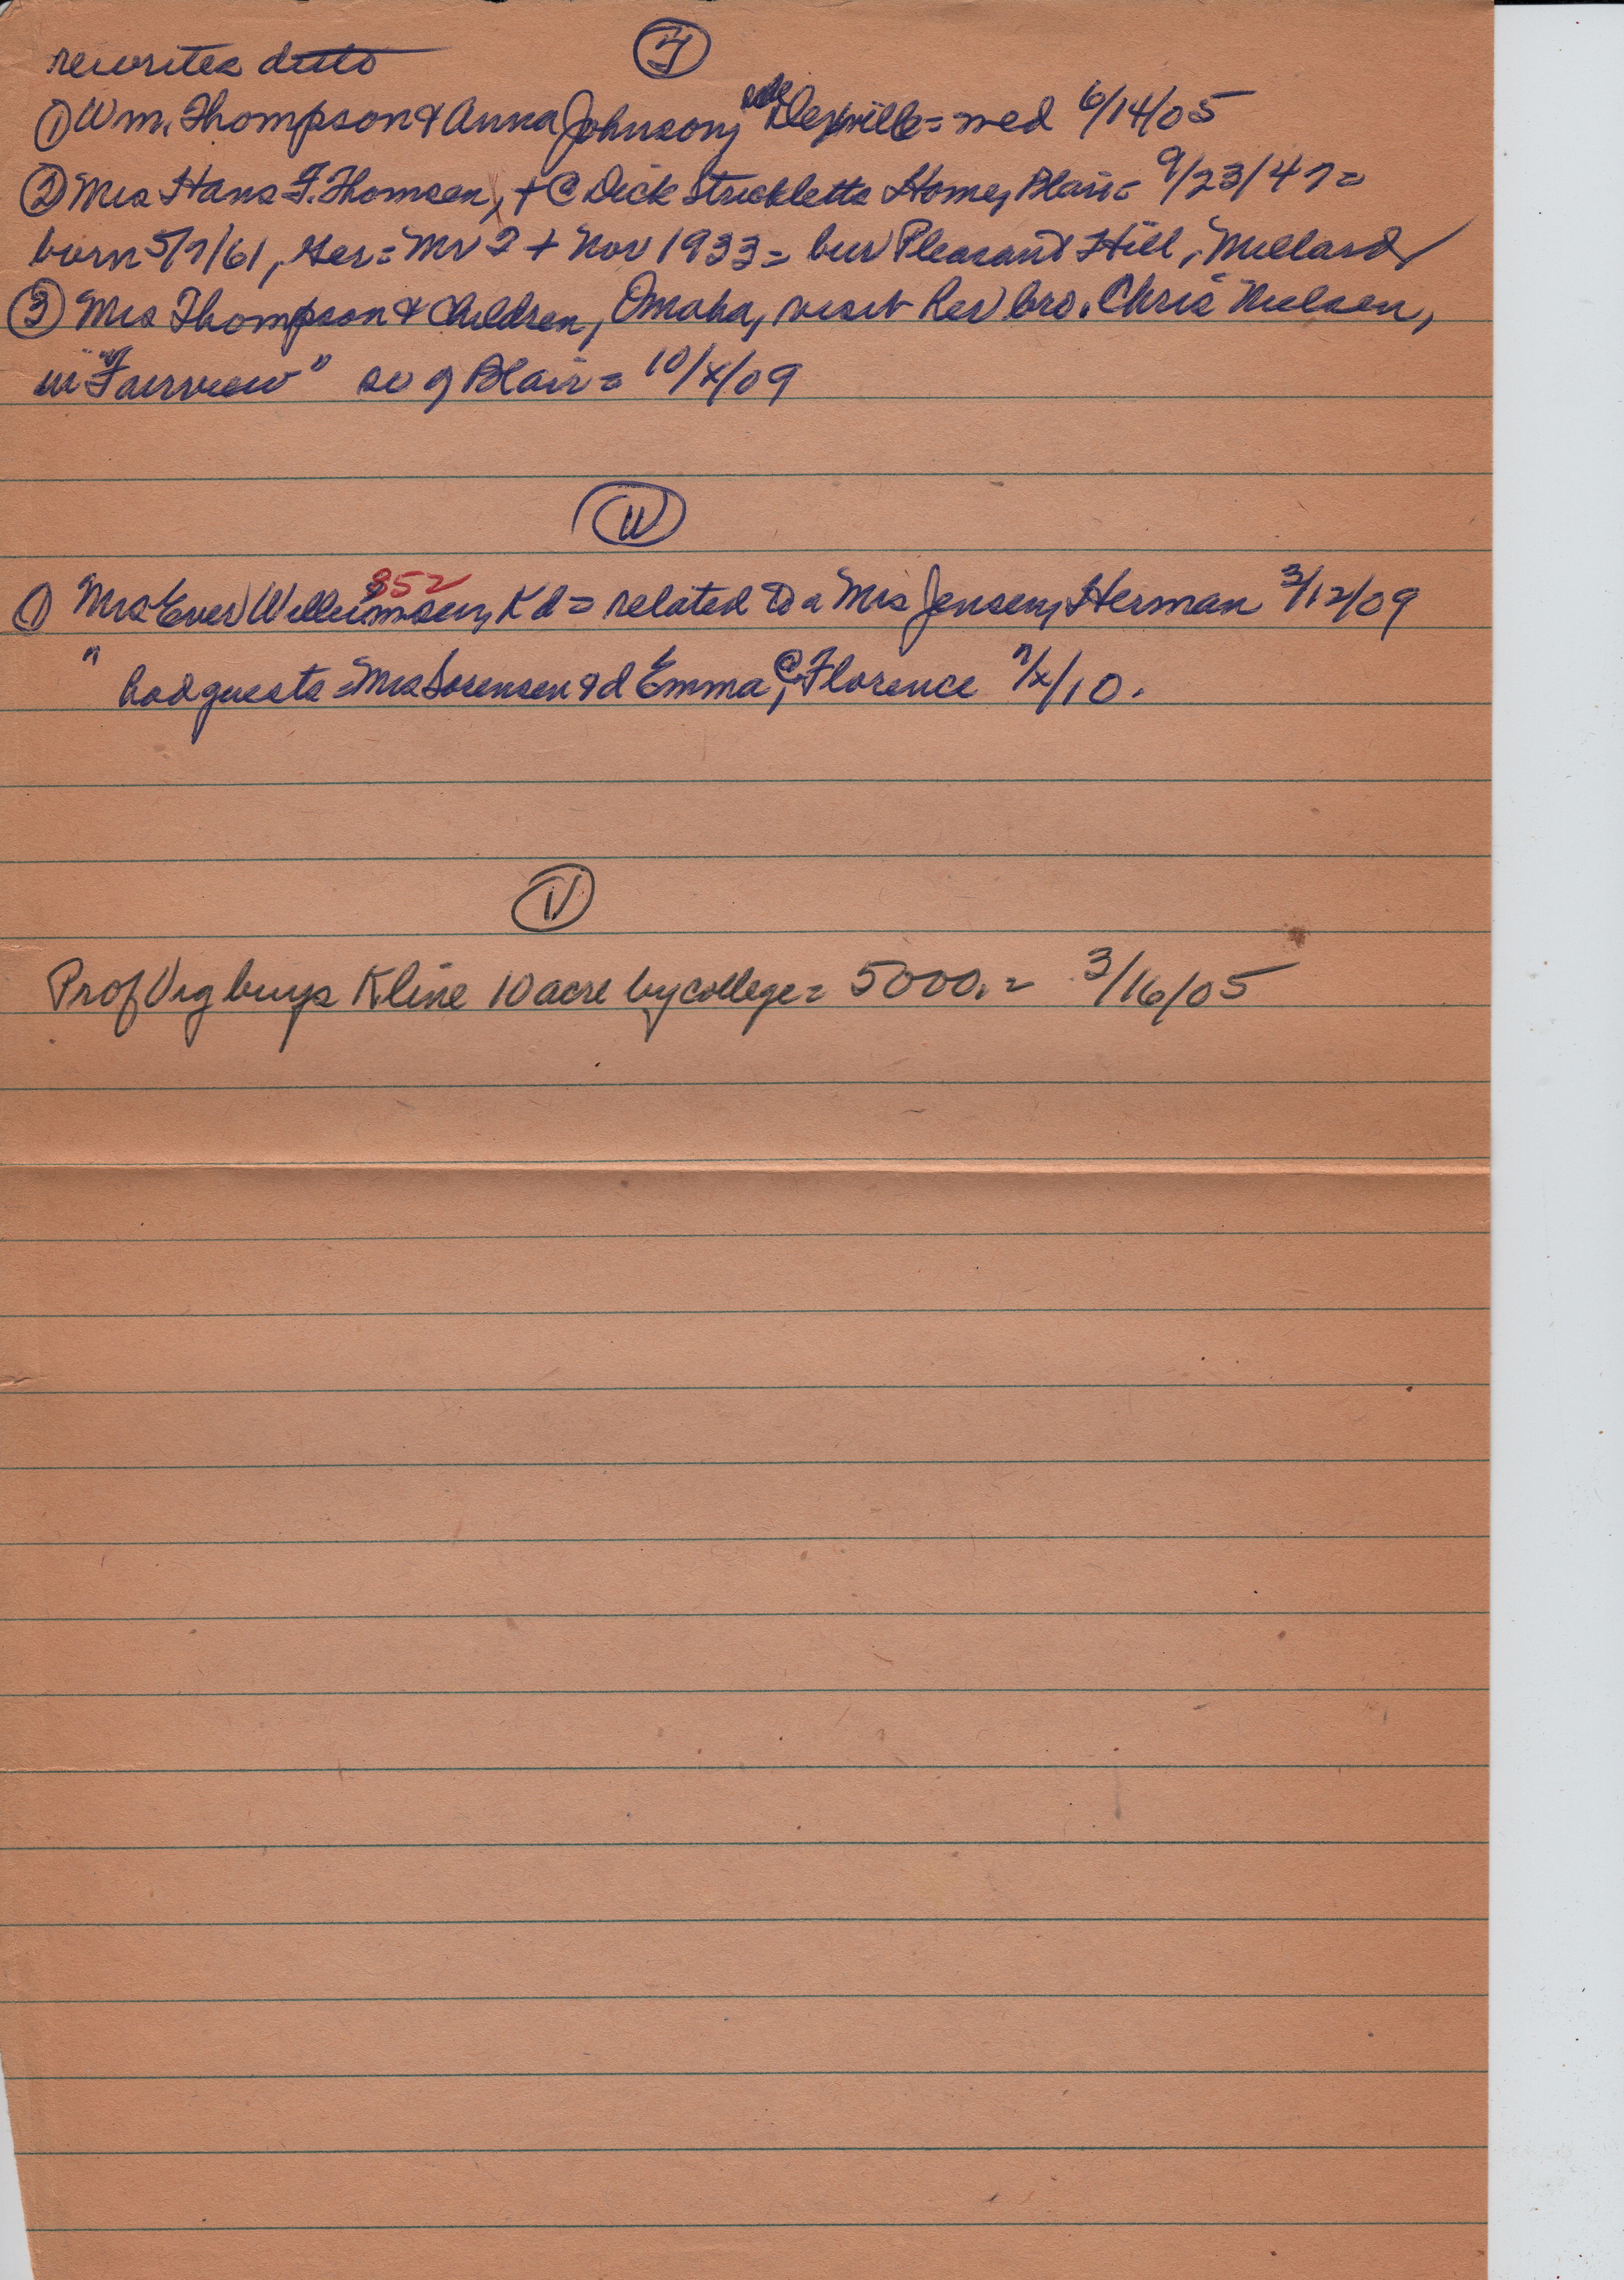 rewrites ditto
T
① Wm. Thompson & Anna Johnson, = med 6/14/05
② Mrs Hans F. Thomsen, + @ Dick Strickletts Home, Blair = 9/23/47 =
born 5/7/61, Ger = Mr 2 + Nov 1933 = bur Pleasant Hill, Millard
③ Mrs Thompson & children, Omaha, visit her bro. Chris Nielsen,
in "Fairview" so of Blair = 10/x/09
W
852
① Mrs Ever Willumsen, Kd = related to a Mrs Jensen, Herman 3/12/09
" had guests = Mrs Sorensen & d Emma, @ Florence 7/x/10.
V
Prof Vig buys Kline 10 acre by college = 5000. = 3/16/05